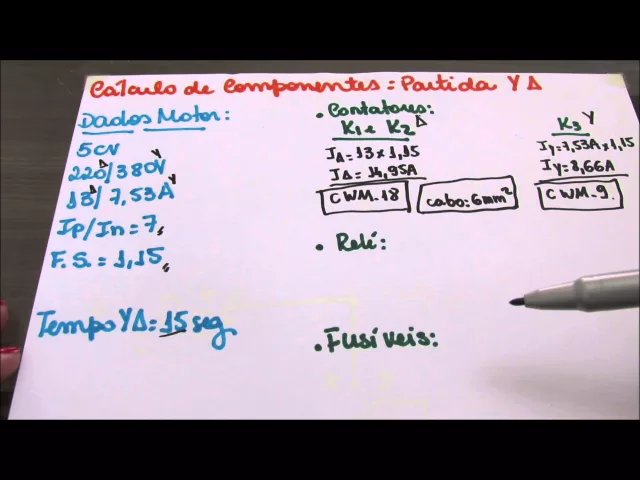 Calculo de Componentes: Partida Y Δ
Dados Motor:
5 CV
220Δ/380V Y
13Δ/7,53A Y
Ip/In = 7,
F.S. = 1,15,
Tempo YΔ = 15 seg
• Contatores:
K1 e K2 Δ
IΔ = 13 x 1,15
IΔ = 14,95A
CWM-18
cabo: 6mm²
K3 Y
IY = 7,53A x 1,15
IY = 8,66A
CWM-9.
• Relé:
• Fusíveis: